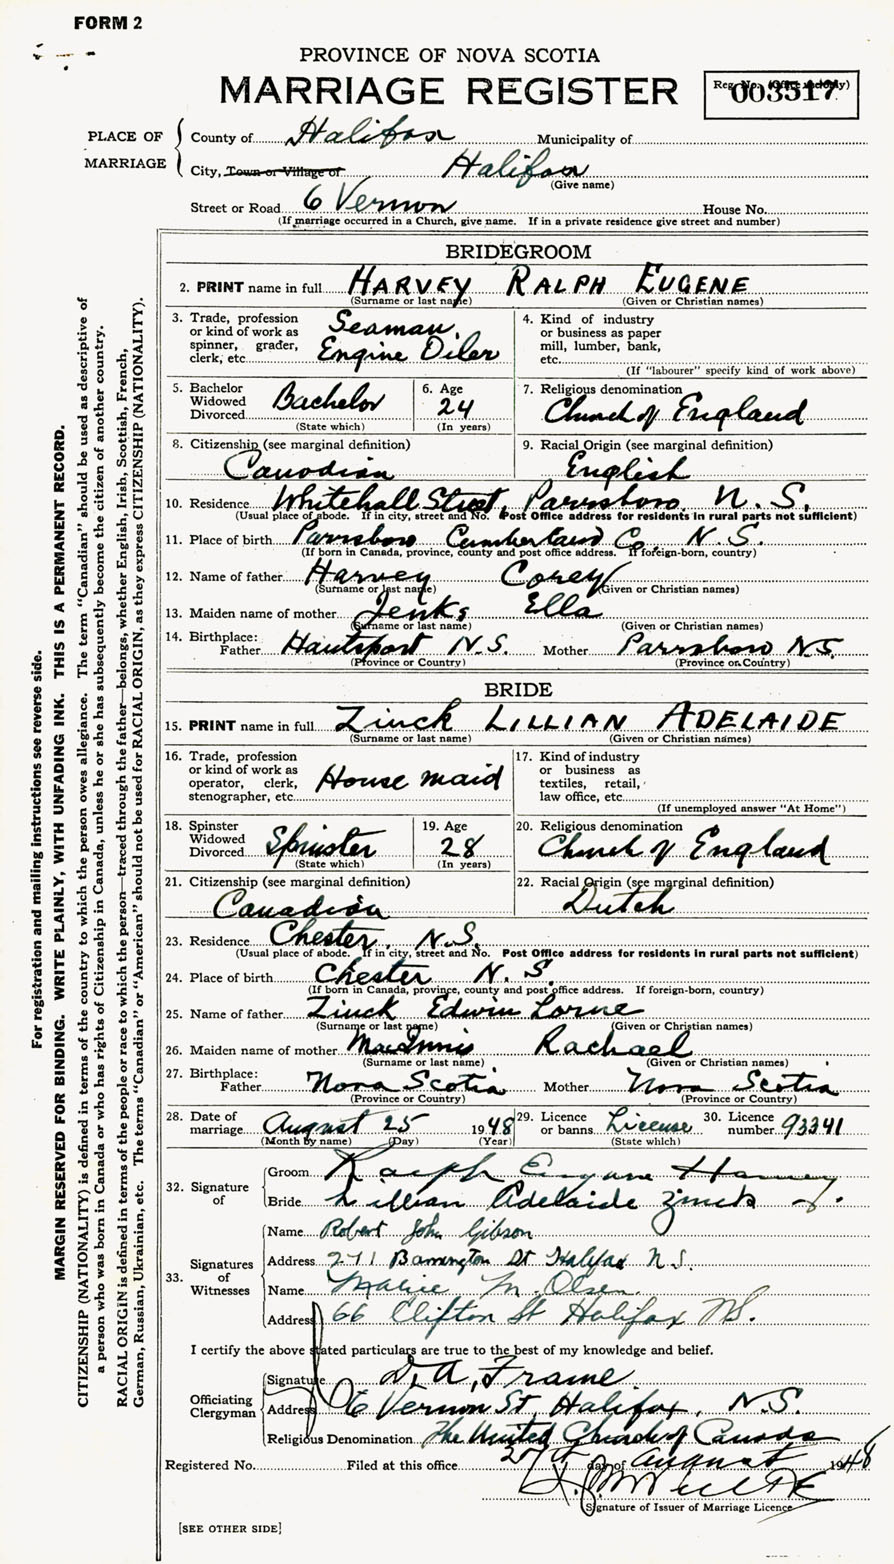 FORM 2
PROVINCE OF NOVA SCOTIA
MARRIAGE REGISTER
Reg. No. (Office use only)
003517
PLACE OF MARRIAGE
County of Halifax Municipality of
City, Town or Village of Halifax
(Give name)
Street or Road 6 Vernon House No.
(If marriage occurred in a Church, give name. If in a private residence give street and number)
BRIDEGROOM
2. PRINT name in full HARVEY RALPH EUGENE
(Surname or last name) (Given or Christian names)
3. Trade, profession or kind of work as spinner, grader, clerk, etc Seaman, Engine Oiler
4. Kind of industry or business as paper mill, lumber, bank, etc.
(If "labourer" specify kind of work above)
5. Bachelor Widowed Divorced Bachelor
(State which)
6. Age 24
(In years)
7. Religious denomination Church of England
8. Citizenship (see marginal definition) Canadian
9. Racial Origin (see marginal definition) English
10. Residence Whitehall Street, Parrsboro, N.S.
(Usual place of abode. If in city, street and No. Post Office address for residents in rural parts not sufficient)
11. Place of birth Parrsboro Cumberland Co. N.S.
(If born in Canada, province, county and post office address. If foreign-born, country)
12. Name of father Harvey Corey
(Surname or last name) (Given or Christian names)
13. Maiden name of mother Jenks Ella
(Surname or last name) (Given or Christian names)
14. Birthplace: Father Hantsport N.S. Mother Parrsboro N.S.
(Province or Country) (Province or Country)
BRIDE
15. PRINT name in full Zinck LILLIAN ADELAIDE
(Surname or last name) (Given or Christian names)
16. Trade, profession or kind of work as operator, clerk, stenographer, etc House maid
17. Kind of industry or business as textiles, retail, law office, etc
(If unemployed answer "At Home")
18. Spinster Widowed Divorced Spinster
(State which)
19. Age 28
(In years)
20. Religious denomination Church of England
21. Citizenship (see marginal definition) Canadian
22. Racial Origin (see marginal definition) Dutch
23. Residence Chester, N.S.
(Usual place of abode. If in city, street and No. Post Office address for residents in rural parts not sufficient)
24. Place of birth Chester N.S.
(If born in Canada, province, county and post office address. If foreign-born, country)
25. Name of father Zinck Edwin Lorne
(Surname or last name) (Given or Christian names)
26. Maiden name of mother MacInnis Rachael
(Surname or last name) (Given or Christian names)
27. Birthplace: Father Nova Scotia Mother Nova Scotia
(Province or Country) (Province or Country)
28. Date of marriage August 25 1948
(Month by name) (Day) (Year)
29. Licence or banns License
(State which)
30. Licence number 93341
32. Signature of
Groom Ralph Eugene Harvey
Bride Lillian Adelaide Zinck
33. Signatures of Witnesses
Name Robert John Gibson
Address 271 Barrington St Halifax N.S.
Name M. Olsen
Address 66 Clifton St Halifax NS.
I certify the above stated particulars are true to the best of my knowledge and belief.
Officiating Clergyman
Signature D. A. Frame
Address 6 Vernon St, Halifax, N.S.
Religious Denomination The United Church of Canada
Registered No. Filed at this office 27th day of August 1948
Signature of Issuer of Marriage Licence
[SEE OTHER SIDE]
For registration and mailing instructions see reverse side.
MARGIN RESERVED FOR BINDING. WRITE PLAINLY, WITH UNFADING INK. THIS IS A PERMANENT RECORD.
CITIZENSHIP (NATIONALITY) is defined in terms of the country to which the person owes allegiance. The term "Canadian" should be used as descriptive of
a person who was born in Canada or who has rights of Citizenship in Canada, unless he or she has subsequently become the citizen of another country.
RACIAL ORIGIN is defined in terms of the people or race to which the person—traced through the father—belongs, whether English, Irish, Scottish, French,
German, Russian, Ukrainian, etc. The terms "Canadian" or "American" should not be used for RACIAL ORIGIN, as they express CITIZENSHIP (NATIONALITY).